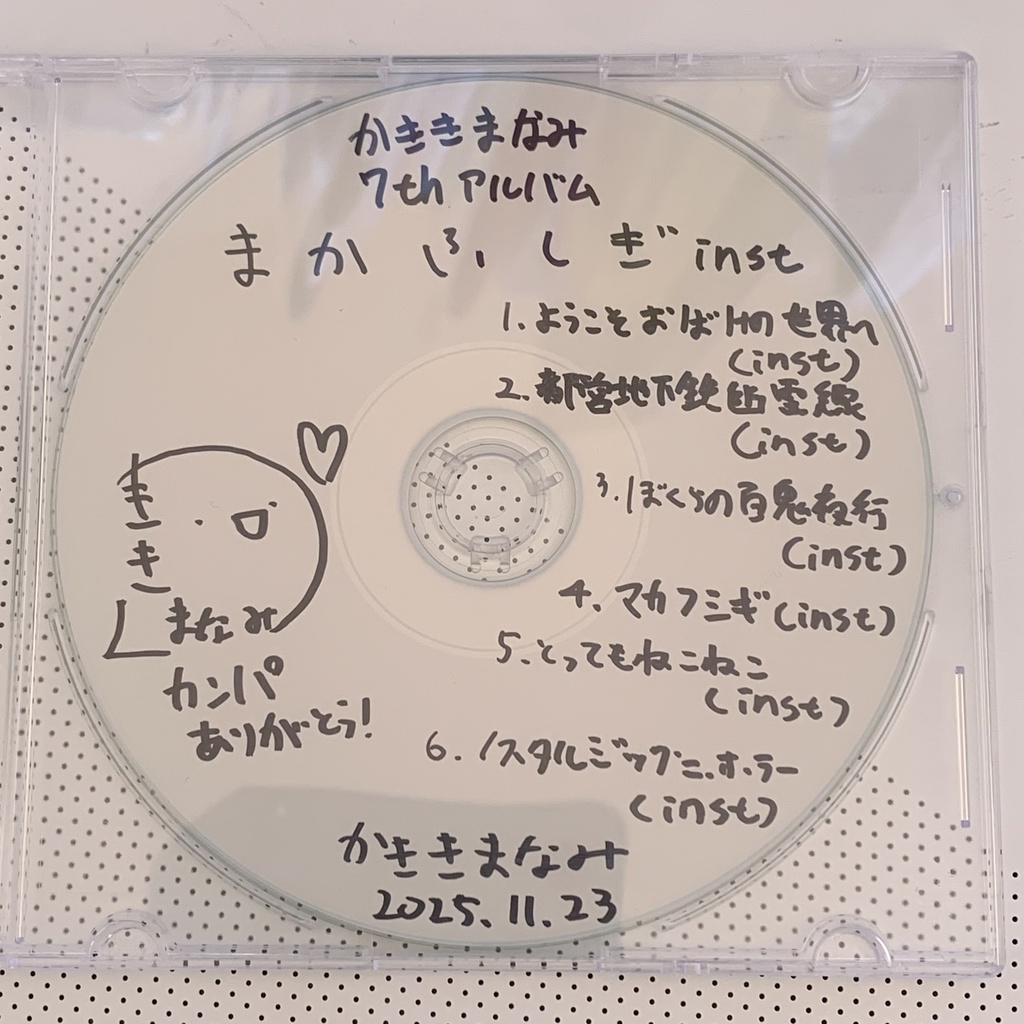 かききまなみ
7thアルバム
まかふしぎ inst
1. ようこそおばけの世界へ
(inst)
2. 都営地下鉄幽霊線
(inst)
3. ぼくらの百鬼夜行
(inst)
4. マカフシギ(inst)
5. とってもねこねこ
(inst)
6. ノスタルジック
(inst)
かききまなみ
2025.11.23
きき
まなみ
カンパ
ありがとう!